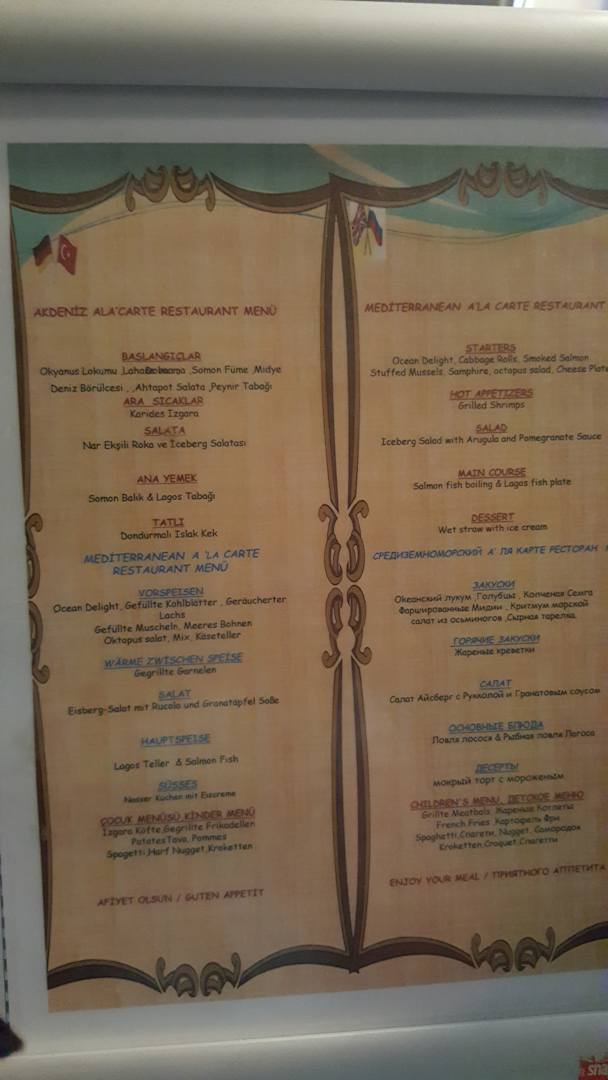 AKDENİZ ALA'CARTE RESTAURANT MENÜ
BAŞLANGIÇLAR
Okyanus Lokumu ,Lahana ,Somon Füme ,Midye
Deniz Börülcesi , ,Ahtapot Salata ,Peynir Tabağı
ARA SICAKLAR
Karides Izgara
SALATA
Nar Ekşili Roka ve İceberg Salatası
ANA YEMEK
Somon Balık & Lagos Tabağı
TATLI
Dondurmalı Islak Kek
MEDİTERRANEAN A 'LA CARTE
RESTAURANT MENÜ
VORSPEISEN
Ocean Delight, Gefüllte Kohlblätter , Geräucherter
Lachs
Gefüllte Muscheln, Meeres Bohnen
Oktopus salat, Mix, Käseteller
WÄRME ZWİSCHEN SPEİSE
Gegrillte Garnelen
SALAT
Eisberg-Salat mit Rucola und Granatapfel Soße
HAUPTSPEISE
Lagos Teller & Salmon Fish
SÜSSES
Nasser Kuchen mit Eiscreme
ÇOCUK MENÜSÜ,KİNDER MENÜ
Izgara Köfte,Gegrilite Frikadellen
PatatesTava, Pommes
Spagetti,Harf Nugget,Kroketten
AFİYET OLSUN / GUTEN APPETIT
MEDİTERRANEAN A'LA CARTE RESTAURANT
STARTERS
Ocean Delight, Cabbage Rolls, Smoked Salmon
Stuffed Mussels, Samphire, octopus salad, Cheese Plate
HOT APPETIZERS
Grilled Shrimps
SALAD
Iceberg Salad with Arugula and Pomegranate Sauce
MAIN COURSE
Salmon fish boiling & Lagos fish plate
DESSERT
Wet straw with ice cream
СРЕДИЗЕМНОМОРСКИЙ А' ЛЯ КАРТЕ РЕСТОРАН
ЗАКУСКИ
Океанский лукум , Голубцы , Копченая Семга
Фаршированные Мидии , Критмум морской
салат из осьминогов ,Сырная тарелка,
ГОРЯЧИЕ ЗАКУСКИ
Жареные креветки
САЛАТ
Салат Айсберг с Рукколой и Гранатовым соусом
ОСНОВНЫЕ БЛЮДА
Ловля лосося & Рыбная ловля Лагоса
ДЕСЕРТЫ
мокрый торт с мороженым
CHILDREN'S MENU, ДЕТСКОЕ МЕНЮ
Grillte Meatbals Жареные Котлеты
French Fries Картофель Фри
Spaghetti,Спагети, Nugget, Самородок
Kroketten,Croquet,Спагетти
ENJOY YOUR MEAL / ПРИЯТНОГО АППЕТИТА